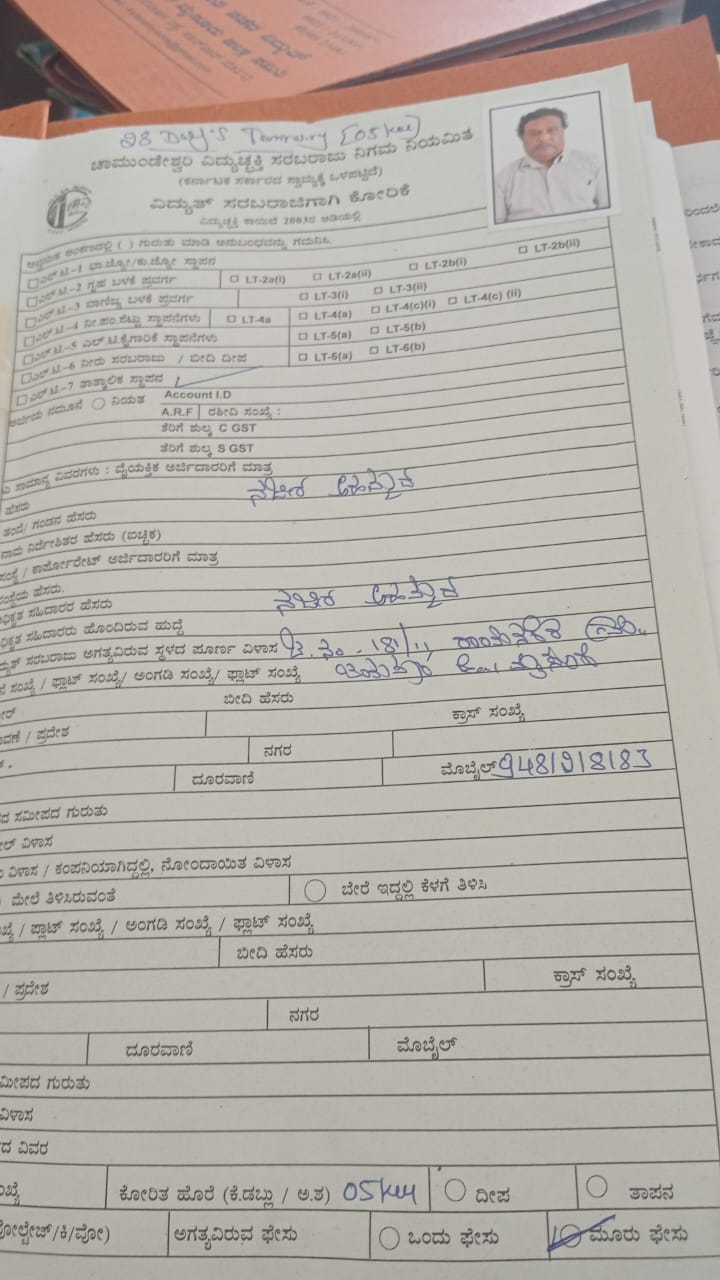 28 Day's Temrory [05 kw]
ಚಾಮುಂಡೇಶ್ವರಿ ವಿದ್ಯುಚ್ಛಕ್ತಿ ಸರಬರಾಜು ನಿಗಮ ನಿಯಮಿತ
(ಕರ್ನಾಟಕ ಸರ್ಕಾರದ ಸ್ವಾಮ್ಯಕ್ಕೆ ಒಳಪಟ್ಟಿದೆ)
ವಿದ್ಯುತ್ ಸರಬರಾಜಿಗಾಗಿ ಕೋರಿಕೆ
ವಿದ್ಯುಚ್ಛಕ್ತಿ ಕಾಯಿದೆ 2003ರ ಅಡಿಯಲ್ಲಿ
ಅನ್ವಯಿತ ಅಂಕಣದಲ್ಲಿ ( ) ಗುರುತು ಮಾಡಿ ಅನುಬಂಧವನ್ನು ಗಮನಿಸಿ.
ಎಲ್.ಟಿ.-1 ಭಾ.ಜ್ಯೋ/ಕು.ಜ್ಯೋ ಸ್ಥಾಪನ
ಎಲ್.ಟಿ.-2 ಗೃಹ ಬಳಕೆ ಪ್ರವರ್ಗ LT-2a(i) LT-2a(ii) LT-2b(i) LT-2b(ii)
ಎಲ್.ಟಿ.-3 ವಾಣಿಜ್ಯ ಬಳಕೆ ಪ್ರವರ್ಗ LT-3(i) LT-3(ii)
ಎಲ್.ಟಿ.-4 ನೀ.ಪಂ.ಸೆಟ್ಟು ಸ್ಥಾಪನೆಗಳು LT-4a LT-4(a) LT-4(c)(i) LT-4(c) (ii)
ಎಲ್.ಟಿ.-5 ಎಲ್.ಟಿ.ಕೈಗಾರಿಕೆ ಸ್ಥಾಪನೆಗಳು LT-5(a) LT-5(b)
ಎಲ್.ಟಿ.-6 ನೀರು ಸರಬರಾಜು / ಬೀದಿ ದೀಪ LT-6(a) LT-6(b)
ಎಲ್.ಟಿ.-7 ತಾತ್ಕಾಲಿಕ ಸ್ಥಾಪನ
ಅರ್ಜಿಯ ನಮೂನೆ ನಿಯತ Account I.D
A.R.F ರಶೀದಿ ಸಂಖ್ಯೆ :
ತೆರಿಗೆ ಶುಲ್ಕ C GST
ತೆರಿಗೆ ಶುಲ್ಕ S GST
ಸಾಮಾನ್ಯ ವಿವರಗಳು : ವೈಯಕ್ತಿಕ ಅರ್ಜಿದಾರರಿಗೆ ಮಾತ್ರ
ಹೆಸರು ನಜೀರ್ ಅಹಮ್ಮದ್
ತಂದೆ/ ಗಂಡನ ಹೆಸರು
ನಾಮ ನಿರ್ದೇಶಿತರ ಹೆಸರು (ಐಚ್ಛಿಕ)
ಸಂಸ್ಥೆ / ಕಾರ್ಪೋರೇಟ್ ಅರ್ಜಿದಾರರಿಗೆ ಮಾತ್ರ
ಸಂಸ್ಥೆಯ ಹೆಸರು.
ಅಧಿಕೃತ ಸಹಿದಾರರ ಹೆಸರು ನಜೀರ್ ಅಹಮ್ಮದ್
ಅಧಿಕೃತ ಸಹಿದಾರರು ಹೊಂದಿರುವ ಹುದ್ದೆ
ವಿದ್ಯುತ್ ಸರಬರಾಜು ಅಗತ್ಯವಿರುವ ಸ್ಥಳದ ಪೂರ್ಣ ವಿಳಾಸ
ಸಂಖ್ಯೆ / ಪ್ಲಾಟ್ ಸಂಖ್ಯೆ/ ಅಂಗಡಿ ಸಂಖ್ಯೆ/ ಫ್ಲಾಟ್ ಸಂಖ್ಯೆ
ಬೀದಿ ಹೆಸರು
ಕ್ರಾಸ್ ಸಂಖ್ಯೆ
/ ಪ್ರದೇಶ
ನಗರ
ದೂರವಾಣಿ ಮೊಬೈಲ್ 9481918183
ಸಮೀಪದ ಗುರುತು
ವಿಳಾಸ
ವಿಳಾಸ / ಕಂಪನಿಯಾಗಿದ್ದಲ್ಲಿ, ನೋಂದಾಯಿತ ವಿಳಾಸ
ಮೇಲೆ ತಿಳಿಸಿರುವಂತೆ ಬೇರೆ ಇದ್ದಲ್ಲಿ ಕೆಳಗೆ ತಿಳಿಸಿ
/ ಪ್ಲಾಟ್ ಸಂಖ್ಯೆ / ಅಂಗಡಿ ಸಂಖ್ಯೆ / ಫ್ಲಾಟ್ ಸಂಖ್ಯೆ
ಬೀದಿ ಹೆಸರು
/ ಪ್ರದೇಶ ಕ್ರಾಸ್ ಸಂಖ್ಯೆ
ನಗರ
ದೂರವಾಣಿ ಮೊಬೈಲ್
ಸಮೀಪದ ಗುರುತು
ವಿಳಾಸ
ವಿವರ
ಕೋರಿತ ಹೊರೆ (ಕೆ.ಡಬ್ಲು / ಅ.ಶ) 05 kw ದೀಪ ತಾಪನ
ವೋಲ್ಟೇಜ್/ಕಿ/ವೋ) ಅಗತ್ಯವಿರುವ ಫೇಸು ಒಂದು ಫೇಸು ಮೂರು ಫೇಸು